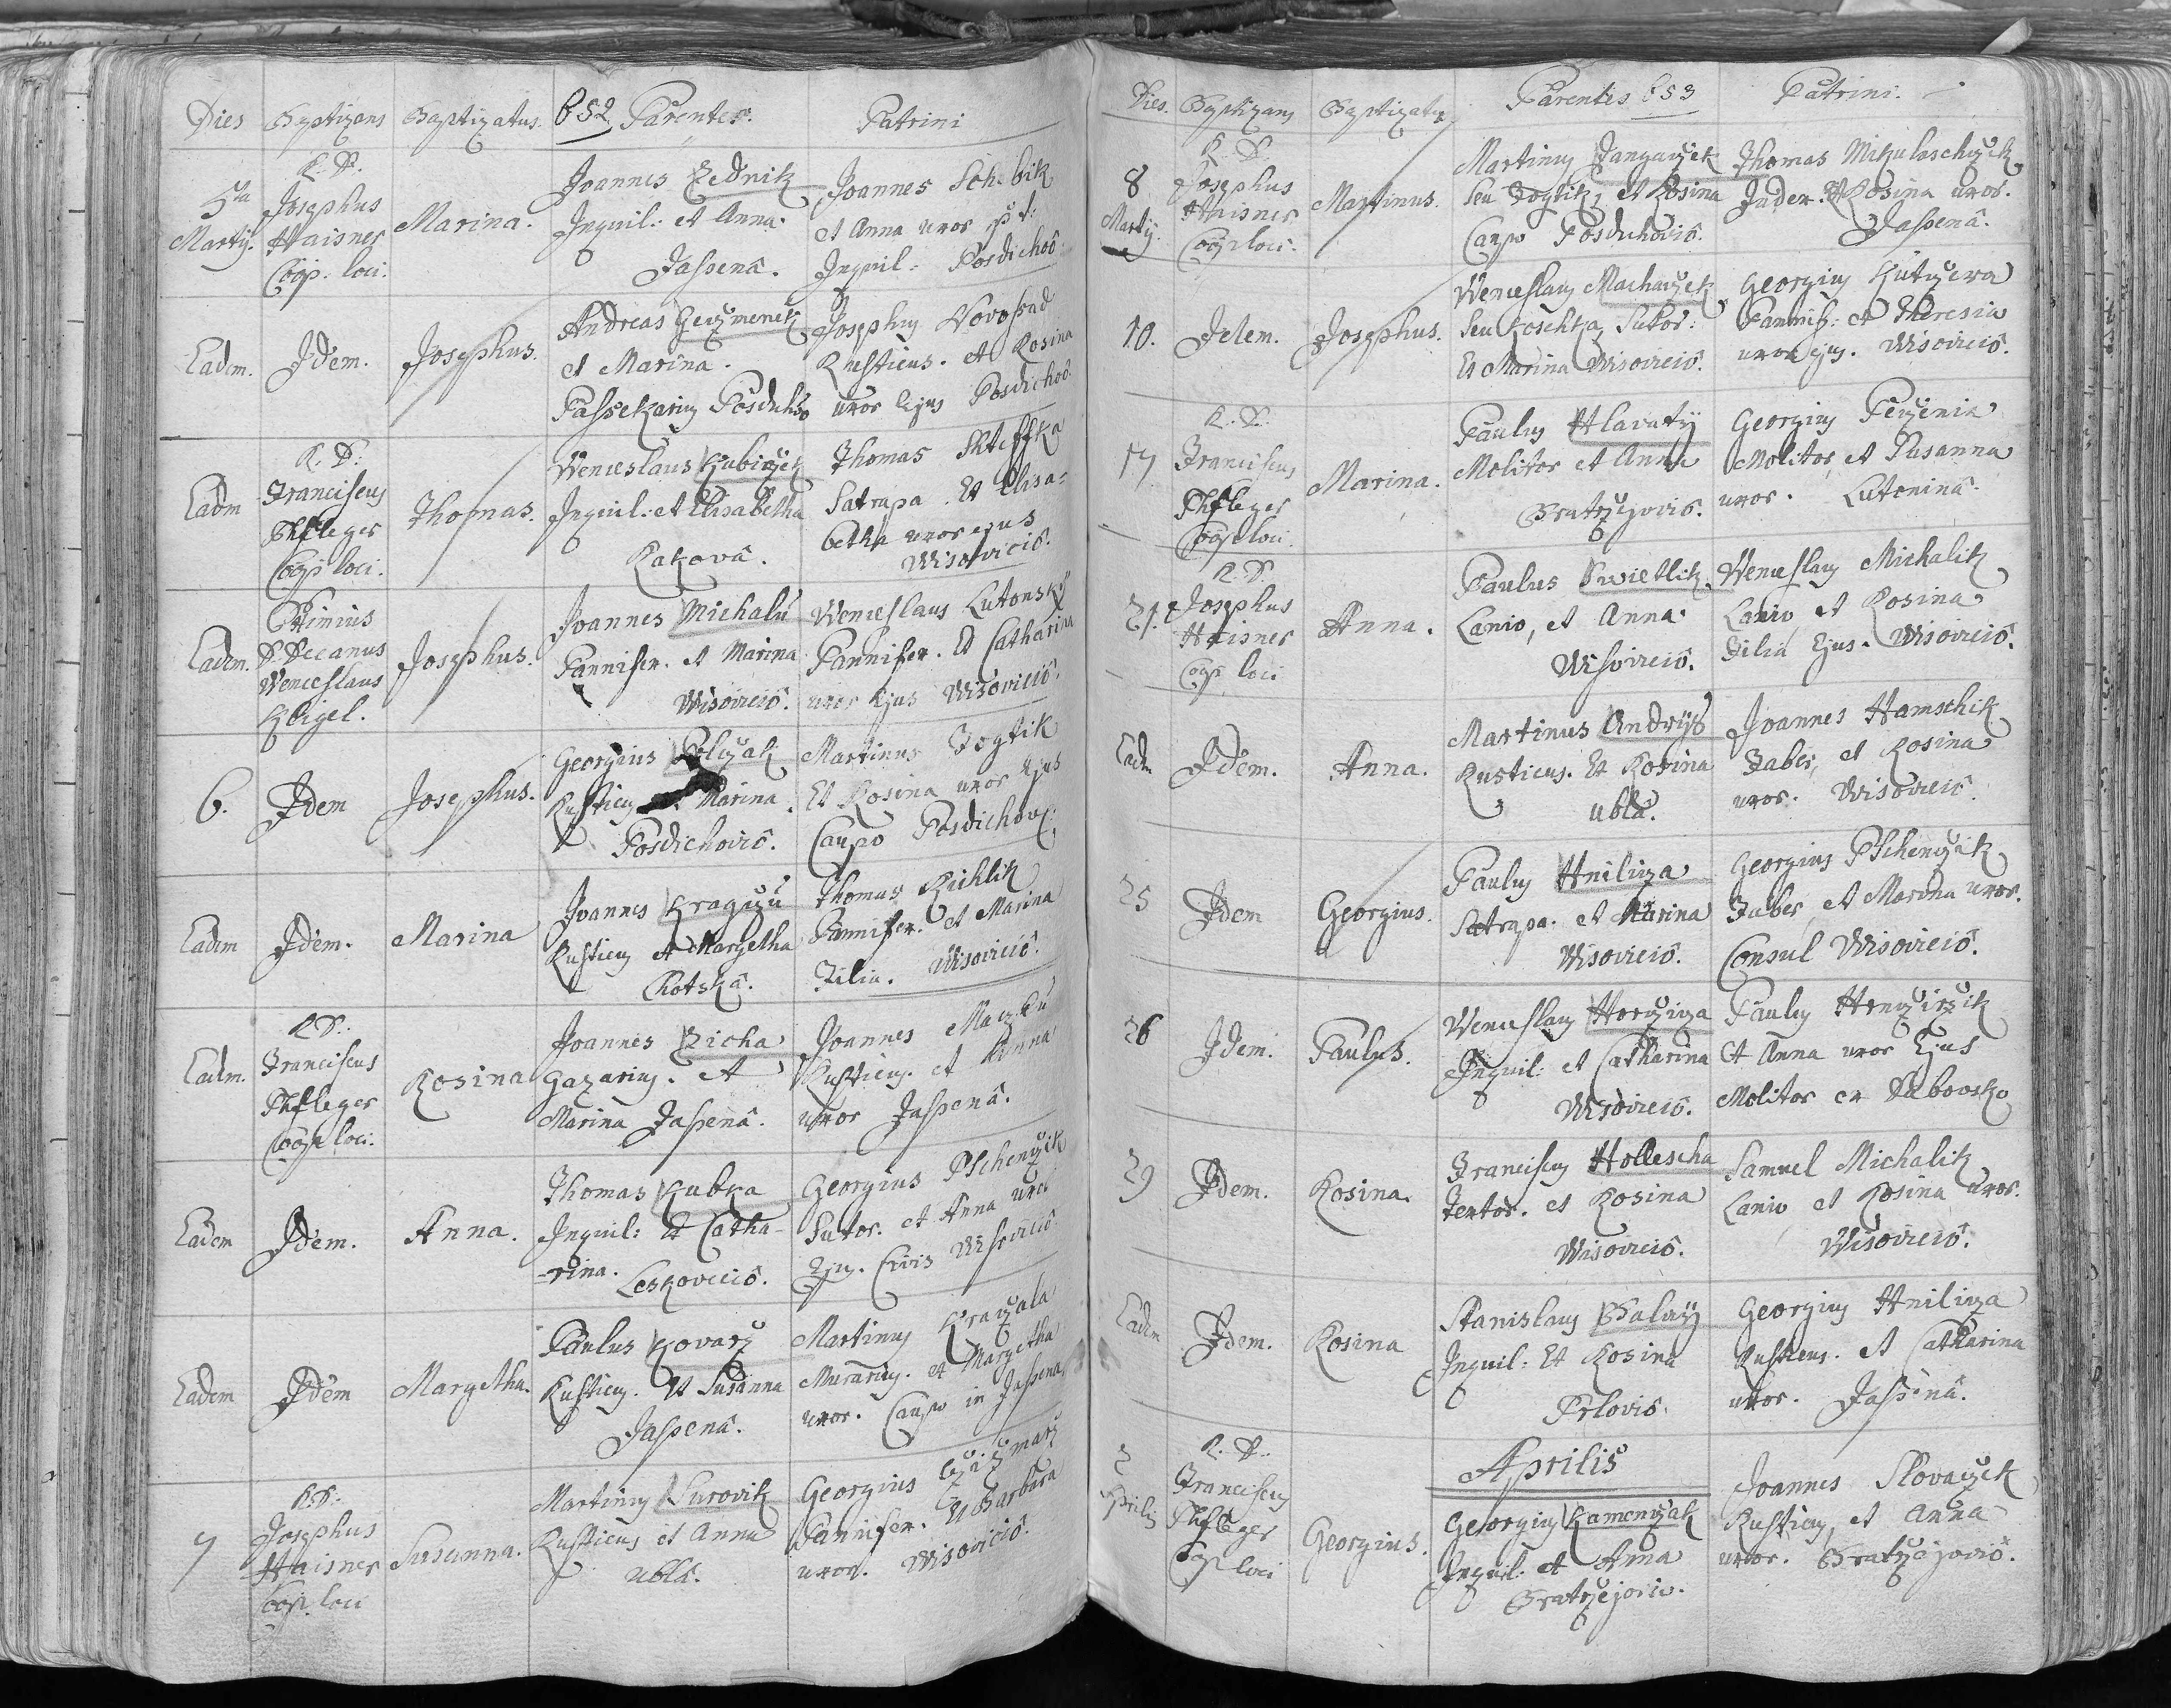 Dies Baptizans Baptizatus. 652 Parentes. Patrini
5ta Martij.
R. D. Josephus Haisner Coop. loci.
Marina.
Joannes Zednik
Inquil: et Anna.
Jassenâ.
Joannes
et Anna uxor
Inquil: Posdichoõ
Eadem.
Idem.
Josephus.
Andreas
et Marina.
Passekarius
Josephus
Rusticus. et Rosina
uxor Ejus Posdichoõ
Eadm
R: D: Franciscus Phfleger Coop loci.
Thomas.
Wenceslaus Kubiczek
Inquil: et Elisabetha
Rakovâ.
Thomas Shteffka
Satrapa. Et Elisa-
betha uxor ejus
Wisovicio.
Eadem.
D. Decanus
Wenceslaus
Josephus.
Joannes Michalú
Pannifex. et Marina
Wisovicio.
Wenceslaus Lutonský
Pannifex. Et Catharina
uxor Ejus Wisovicio.
6.
Idem
Josephus.
Georgius
Rusticus Marina.
Posdichovio.
Martinus Fogtik
Et Rosina uxor Ejus
Caupo
Eadem
Idem.
Marina
Joannes
Rusticus et Margetha
Lhotskâ.
Thomas Richlik
Pannifex. et Marina
Filia. Wisovicio.
Eadm.
R D: Franciscus Phfleger Coop loci.
Rosina
Joannes Zicha
Gazarius. et
Marina Jassenâ.
Joannes
Rusticus. et Anna
uxor Jassenâ.
Eadem
Idem.
Anna.
Thomas Kubka
Inquil: Et Catha-
-rina. Leskovecio.
Georgius Pschenczik
Sutor. et Anna uxor
Ejus. Civis Wisovicio
Eadem
Idem
Margetha.
Paulus Kovarz
Rusticus. Et Susanna
Jassenâ.
Martinus
Murarius. et Margetha
uxor. Caupo in Jassena
7
R D: Josephus Haisner Coop. loci
Susanna.
Martinus Surovik
Rusticus et Anna
Ublâ.
Georgius Czizmarz
Pannifex. Et Barbara
uxor. Wisovicio.
Dies. Baptizans Baptizatus Parentes 653 Patrini.
8 Martij.
R. D. Josephus Haisner Coop loci.
Martinus.
Martinus
seu Fogtik, et Rosina
Caupo Posduchovio.
Thomas Mikulaschczek
Et Rosina uxor.
Jassenâ.
10.
Idem.
Josephus.
Wenceslaus Machaczek
seu Koschka, Sutor:
Et Marina Wisovicio.
Georgius Kutzera
Pannif: et Theresia
uxor ejus. Wisovicio.
17
R. D. Franciscus Phfleger Coop loci.
Marina.
Paulus Hlavatý
Molitor et Anna
Bratrzejovio.
Georgius
Molitor, et Susanna
uxor. Lutoninâ.
21.
R. D. Josephus Haisner Coop loci
Anna.
Paulus Swietlik
Lanio, et Anna.
Wisovicio.
Wenceslaus Michalik
Lanio, et Rosina
Filia Ejus. Wisovicio.
Eadm
Idem.
Anna.
Martinus Andrýs
Rusticus. Et Rosina
Ublâ.
Joannes Hamschik
Faber, et Rosina
uxor. Wisovicio.
25
Idem
Georgius.
Paulus Hnilicza
Satrapa. et Marina
Wisovicio.
Georgius Pschenczik
Faber, et Marina uxor.
Consul Wisovicio.
26
Idem.
Paulus.
Wenceslaus
Inquil: et Catharina
Wisovicio.
Paulus
Et Anna uxor Ejus
Molitor ex
29
Idem.
Rosina.
Franciscus Hollescha
Textor. et Rosina
Wisovicio.
Samuel Michalik
Lanio et Rosina uxor.
Wisovicio.
Eadem
Idem.
Rosina
Stanislaus
Inquil: Et Rosina
Prlovio.
Georgius Hnilicza
Rusticus. et Catharina
uxor. Jassenâ.
Aprilis
2 Aprilis
R. D. Franciscus Phfleger Coop loci
Georgius.
Georgius Kamenczak
Inquil. et Anna
Bratrzejovio.
Joannes Slovaczek
Rusticus, et Anna
uxor. Bratrzejovio.